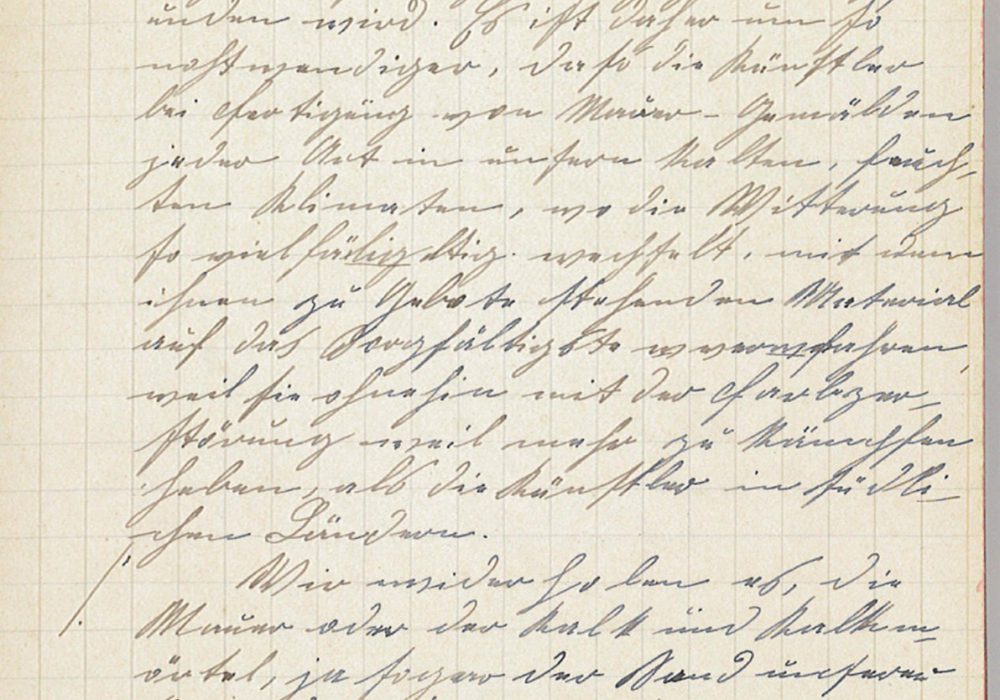 unden wird. Es ist daher um so
nothwendiger, daß die Künstler
bei Fertigung von Mauer-Gemälden
jeder Art in unsern kalten, feuch-
ten Klimaten, wo die Witterung
so vielfältig wechselt, mit dem
ihnen zu Gebote stehenden Material
auf das Sorgfältigste verfahren,
weil sie ohnehin mit der Farbzer-
störung weil mehr zu kämpfen
haben, als die Künstler in südli-
chen Ländern.
Wir widerholen es, die
Mauer oder der Kalk und Kalkm-
örtel, ja sogar der Sand unserer